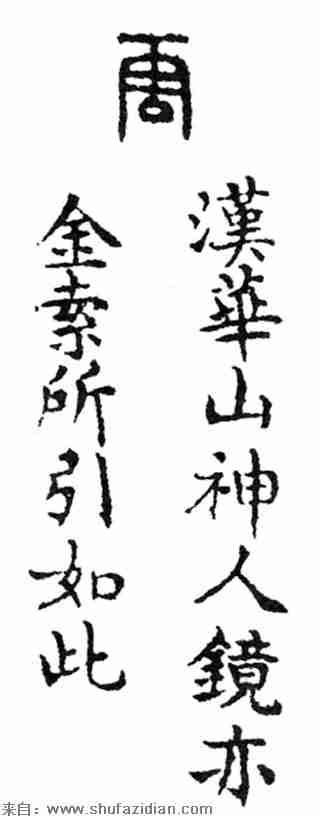 周
漢華山神人鏡亦
金索所引如此
来自：www.shufazidian.com